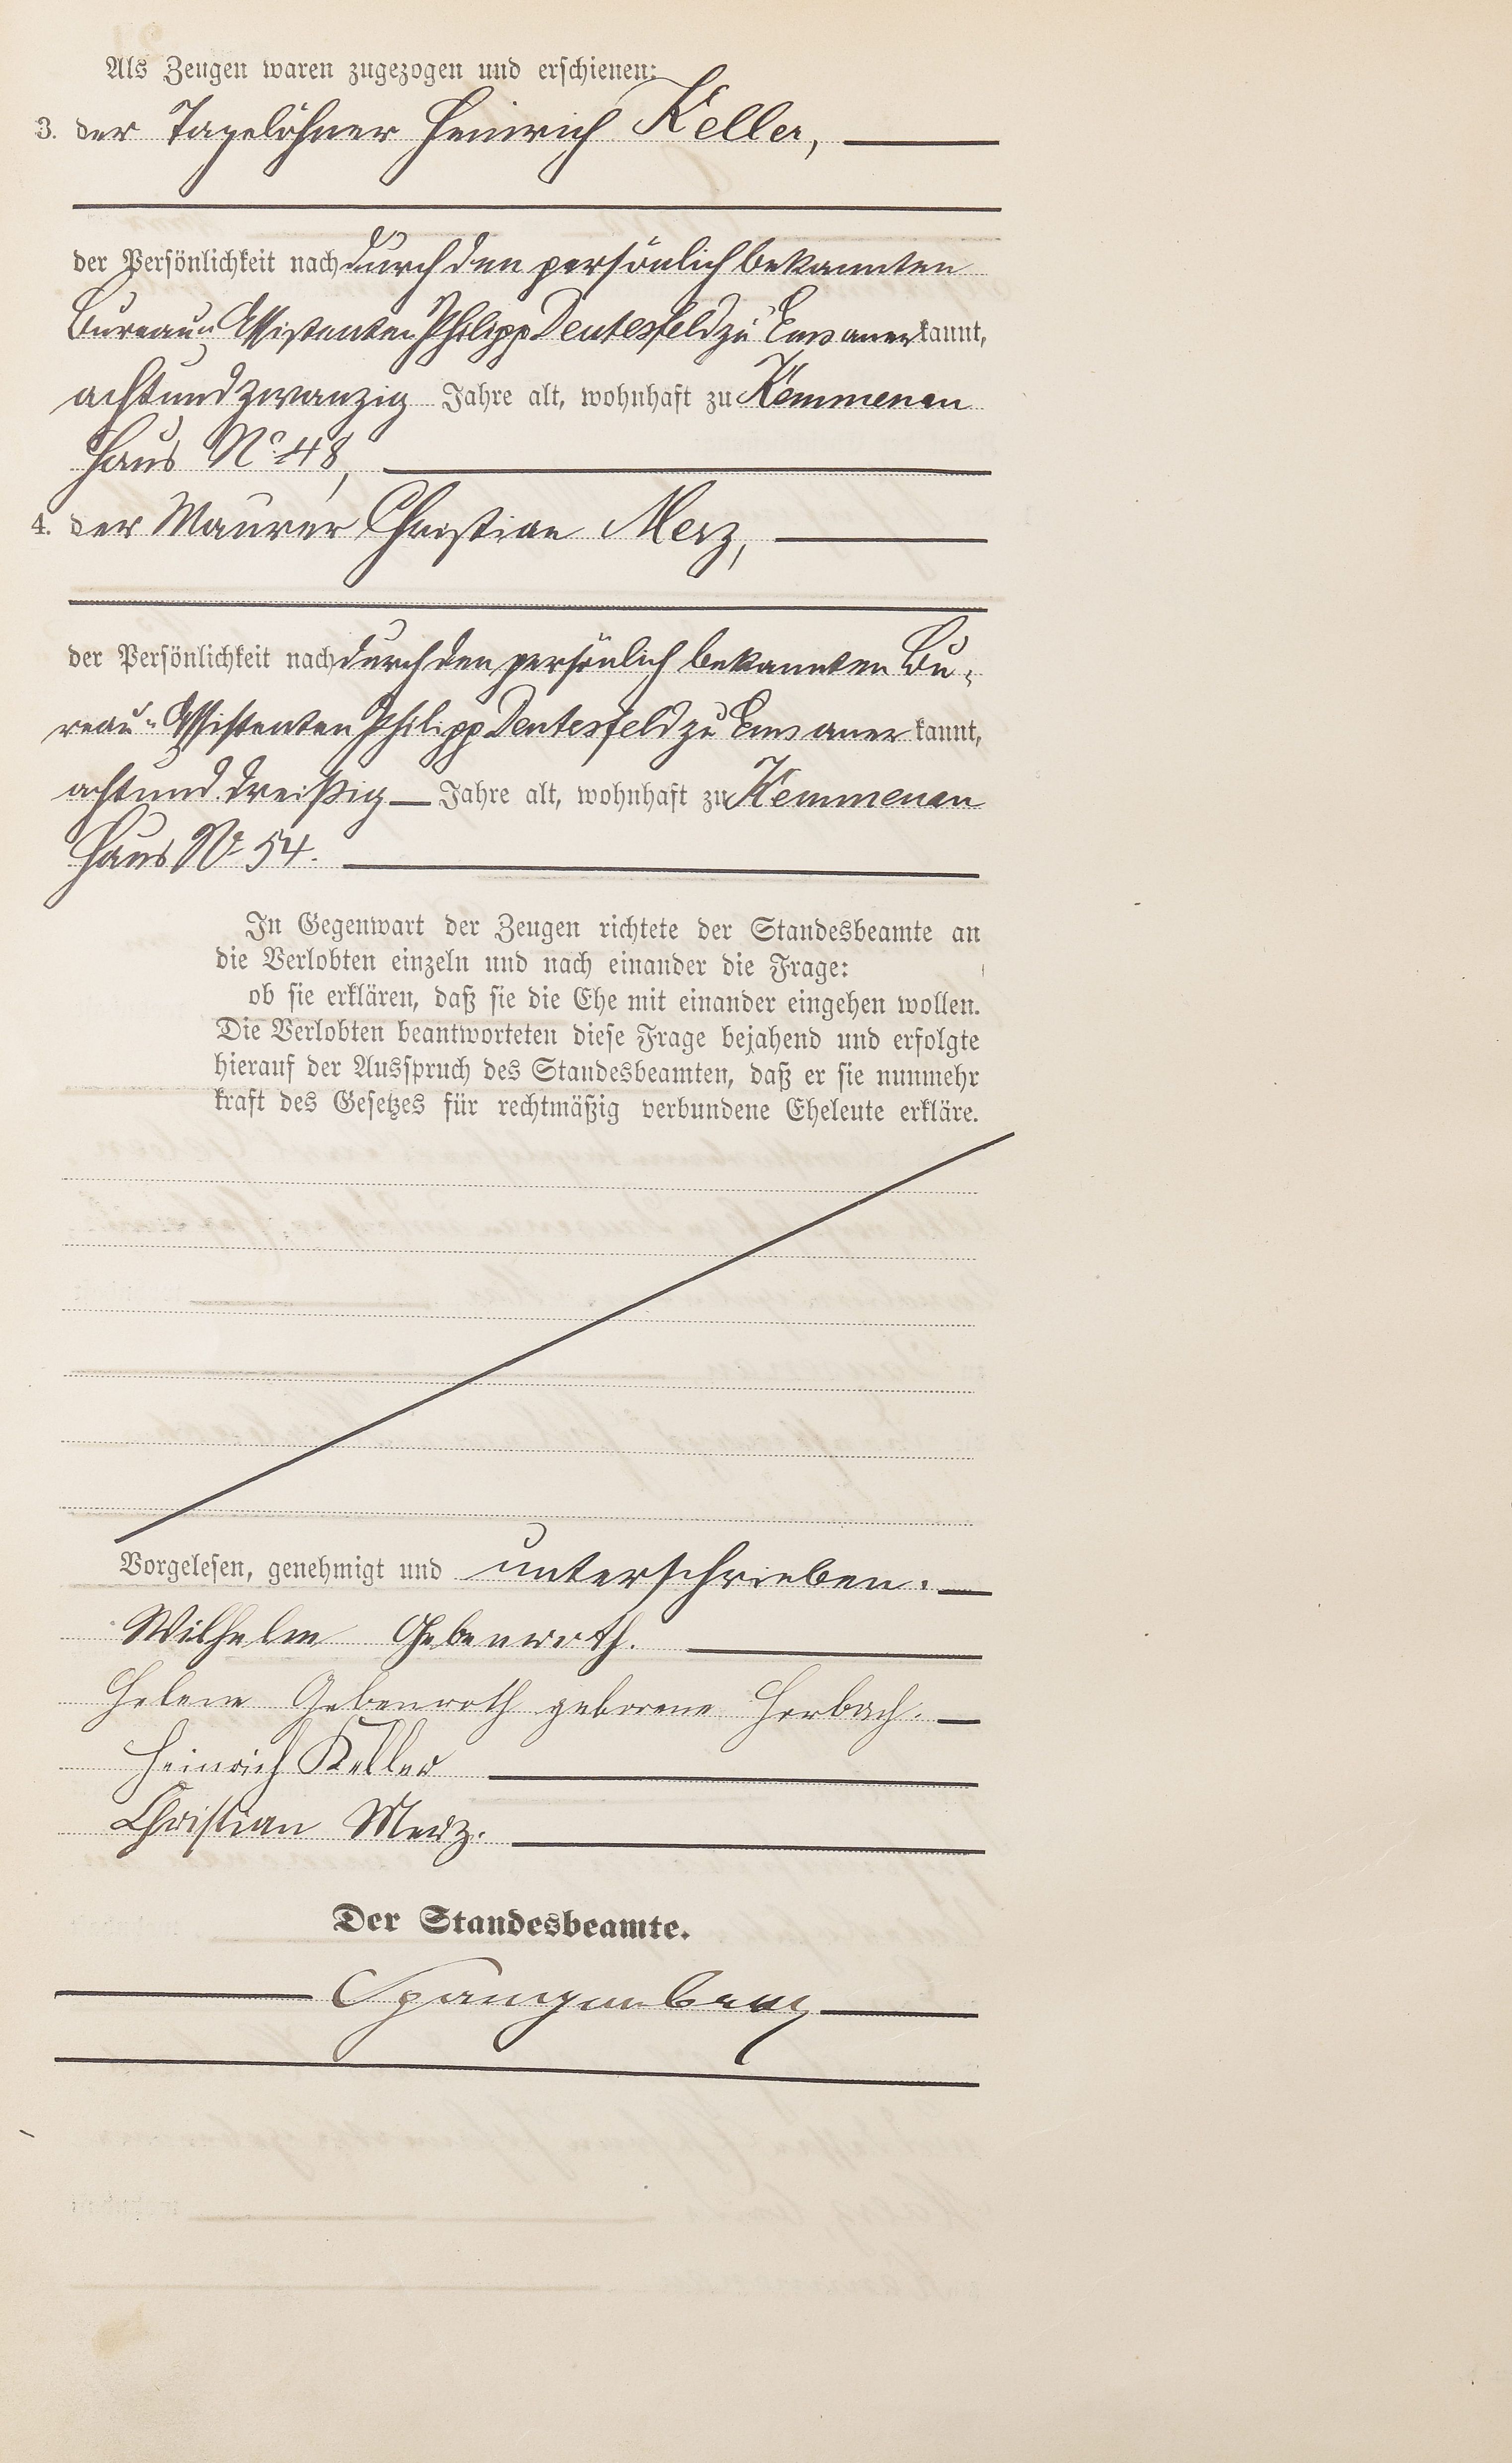 Als Zeugen waren zugezogen und erschienen:
3. der Tagelöhner Heinrich Keller,
der Persönlichkeit nach durch den persönlich bekannten
Bureau-Assistenten Philipp Deutesfeld zu Ems anerkannt,
achtundzwanzig Jahre alt, wohnhaft zu Kemmenau
Haus No. 48,
4. der Maurer Christian Merz,
der Persönlichkeit nach durch den persönlich bekannten Bu-
reau-Assistenten Philipp Deutesfeld zu Ems anerkannt,
achtunddreißig Jahre alt, wohnhaft zu Kemmenau
Haus No 54.
In Gegenwart der Zeugen richtete der Standesbeamte an
die Verlobten einzeln und nach einander die Frage:
ob sie erklären, daß sie die Ehe mit einander eingehen wollen.
Die Verlobten beantworteten diese Frage bejahend und erfolgte
hierauf der Ausspruch des Standesbeamten, daß er sie nunmehr
kraft des Gesetzes für rechtmäßig verbundene Eheleute erkläre.
Vorgelesen, genehmigt und unterschrieben.
Wilhelm Gebenroth.
Helene Gebenroth geborene Horbach.
Heinrich Keller
Christian Merz.
Der Standesbeamte.
Spangenberg